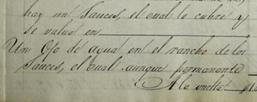 hay un Sauces, el cual lo cubre y
se valuó en
Un Ojo de agua en el rancho de los
Sauces, el cual aunque permanente
A la vuelta